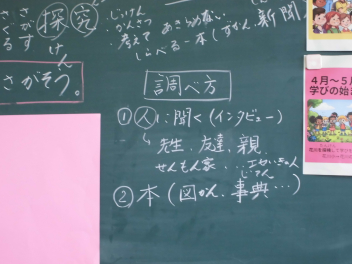 さ・さ
が・ぐ
す・る
探究
けん
・じっけん
・かんさつ
・考えて
あきらめない
しらべる－本(ずかん、新聞
さがそう。
調べ方
①人:聞く(インタビュー)
↳先生、友達、親、
せんもん家、…
②本(図かん、事典…)
4月～5月
学びの始